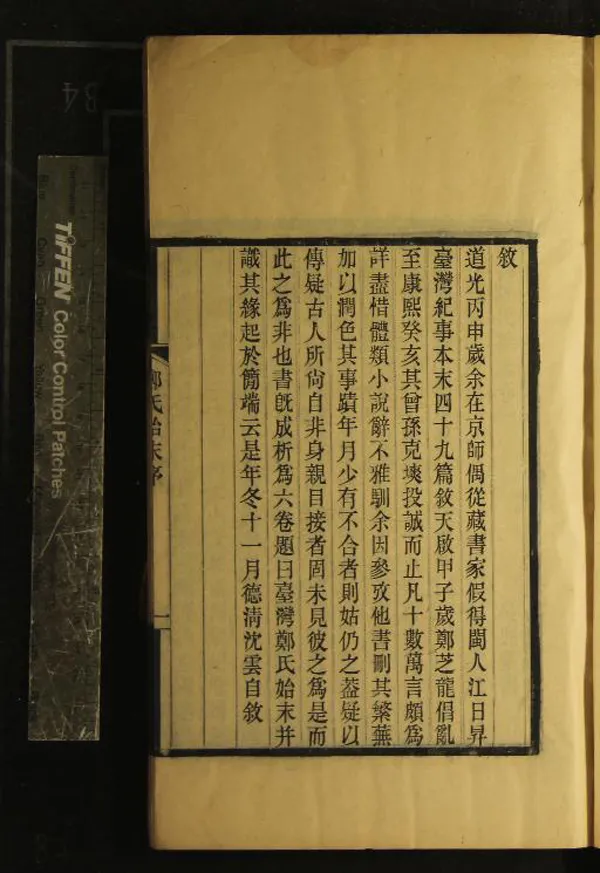 敘
道光丙申歲余在京師偶從藏書家假得閩人江日昇
臺灣紀事本末四十九篇敘天啟甲子歲鄭芝龍倡亂
至康熙癸亥其曾孫克塽投誠而止凡十數萬言頗爲
詳盡惜體類小說辭不雅馴余因參攷他書刪其繁蕪
加以潤色其事蹟年月少有不合者則姑仍之葢疑以
傳疑古人所尙自非身親目接者固未見彼之爲是而
此之爲非也書旣成析爲六卷題曰臺灣鄭氏始末并
識其緣起於簡端云是年冬十一月德清沈雲自敘
鄭氏始末序
TIFFEN Color Control Patches